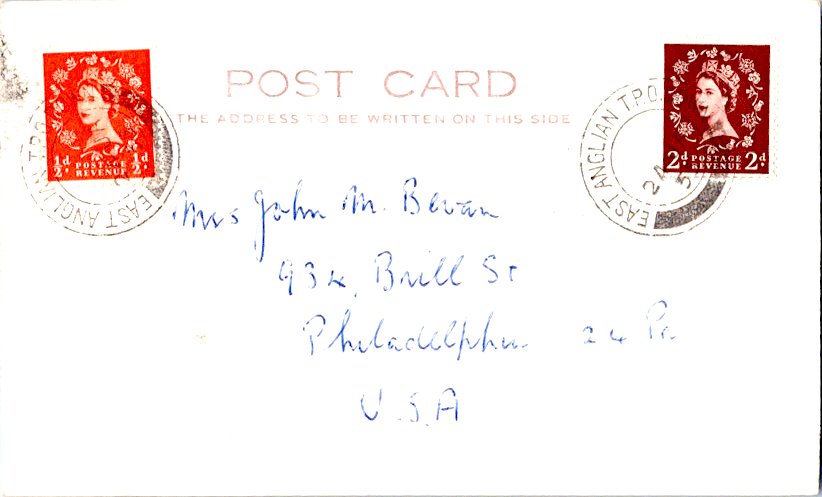 POST CARD
THE ADDRESS TO BE WRITTEN ON THIS SIDE
½d POSTAGE REVENUE ½d
2d POSTAGE REVENUE 2d
EAST ANGLIAN T.P.O.
EAST ANGLIAN T.P.O.
Mrs John M. Bevan
934, Brill St
Philadelphia 24 Pa
U.S.A